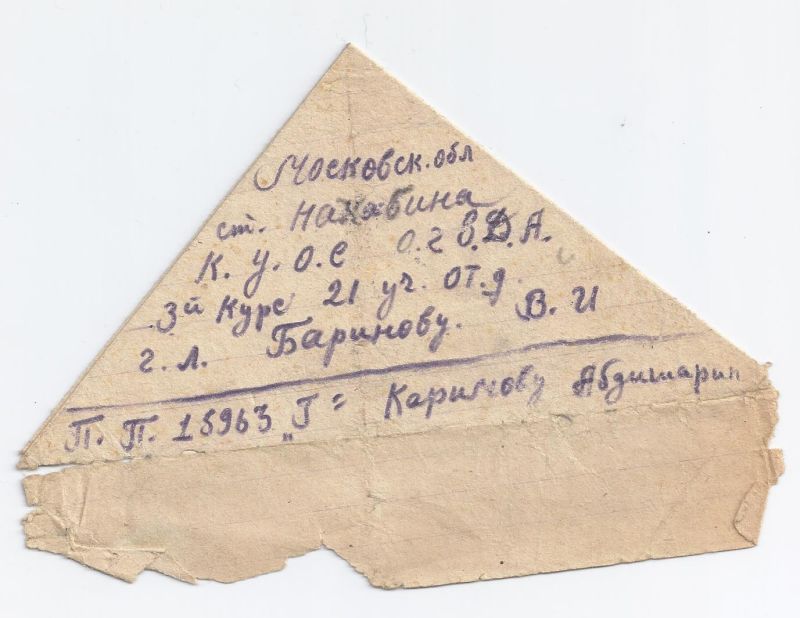 Московск. обл
ст. Нахабина
К. У. О. С О. Г Б. Д. А.
3й Курс 21 уч. от. д.
г. л. Баринову. В. И
П. П. 18963 „Г" Каримову Абдишарип